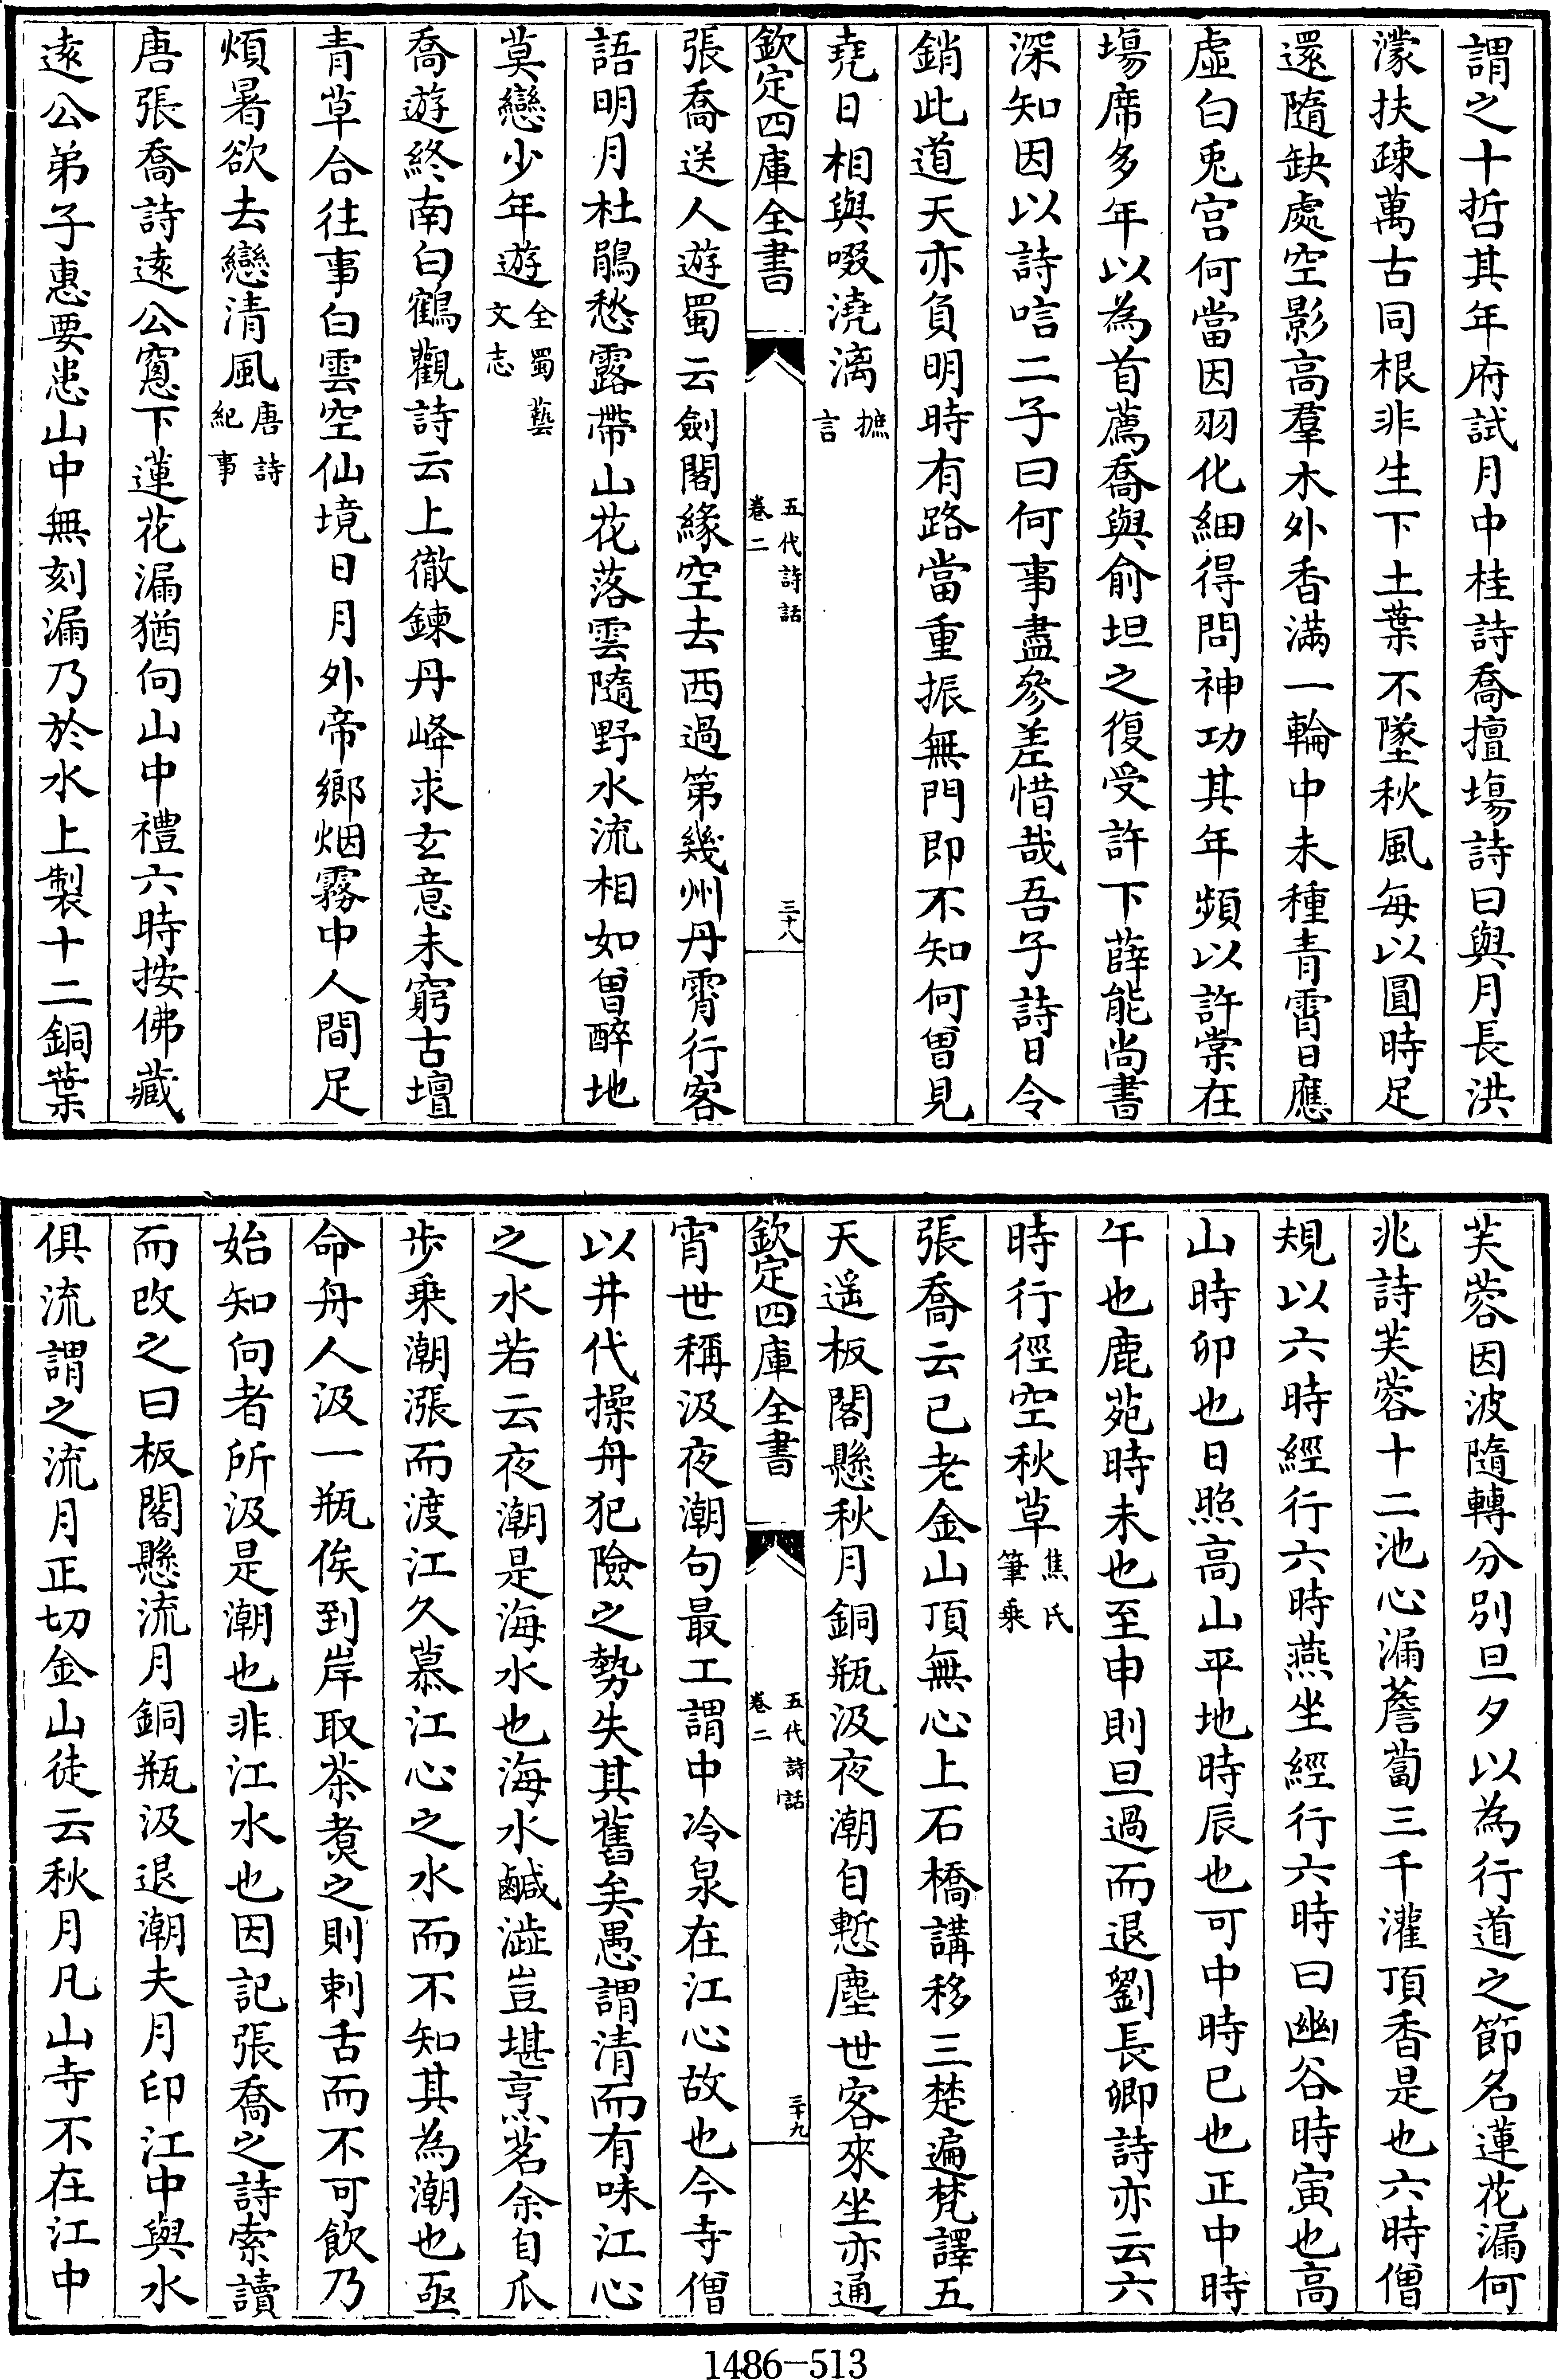 謂之十哲其年府試月中桂詩喬擅塲詩曰與月長洪
濛扶疎萬古同根非生下土葉不墜秋風每以圓時足
還隨缺處空影高羣木外香滿一輪中未種青霄日應
虛白兎宫何當因羽化細得問神功其年頻以許棠在
塲席多年以為首薦喬與俞坦之復受許下薛能尚書
深知因以詩唁二子曰何事盡參差惜哉吾子詩日令
銷此道天亦負明時有路當重振無門即不知何曽見
堯日相與啜澆漓摭言
欽定四庫全書
五代詩話
卷二
三十八
張喬送人遊蜀云劍閣緣空去西過第幾州丹霄行客
語明月杜鵑愁露帶山花落雲隨野水流相如曽醉地
莫戀少年遊全蜀藝文志
喬遊終南白鶴觀詩云上徹鍊丹峰求玄意未窮古壇
青草合往事白雲空仙境日月外帝鄉烟霧中人間足
煩暑欲去戀清風唐詩紀事
唐張喬詩遠公窻下蓮花漏猶向山中禮六時按佛藏
遠公弟子惠要患山中無刻漏乃於水上製十二銅葉
芙蓉因波隨轉分别旦夕以為行道之節名蓮花漏何
兆詩芙蓉十二池心漏薝蔔三千灌頂香是也六時僧
規以六時經行六時燕坐經行六時曰幽谷時寅也高
山時卯也日照高山平地時辰也可中時巳也正中時
午也鹿苑時未也至申則旦過而退劉長卿詩亦云六
時行徑空秋草焦氏筆乗
張喬云已老金山頂無心上石橋講移三楚遍梵譯五
天遥板閣懸秋月銅瓶汲夜潮自慙塵世客來坐亦通
欽定四庫全書
五代詩話
卷二
三十九
宵世稱汲夜潮句最工謂中冷泉在江心故也今寺僧
以井代操舟犯險之勢失其舊矣愚謂清而有味江心
之水若云夜潮是海水也海水鹹澁豈堪烹茗余自瓜
步乗潮漲而渡江久慕江心之水而不知其為潮也亟
命舟人汲一瓶俟到岸取茶煑之則刺舌而不可飲乃
始知向者所汲是潮也非江水也因記張喬之詩索讀
而改之曰板閣懸流月銅瓶汲退潮夫月印江中與水
俱流謂之流月正切金山徒云秋月凡山寺不在江中
1486-513